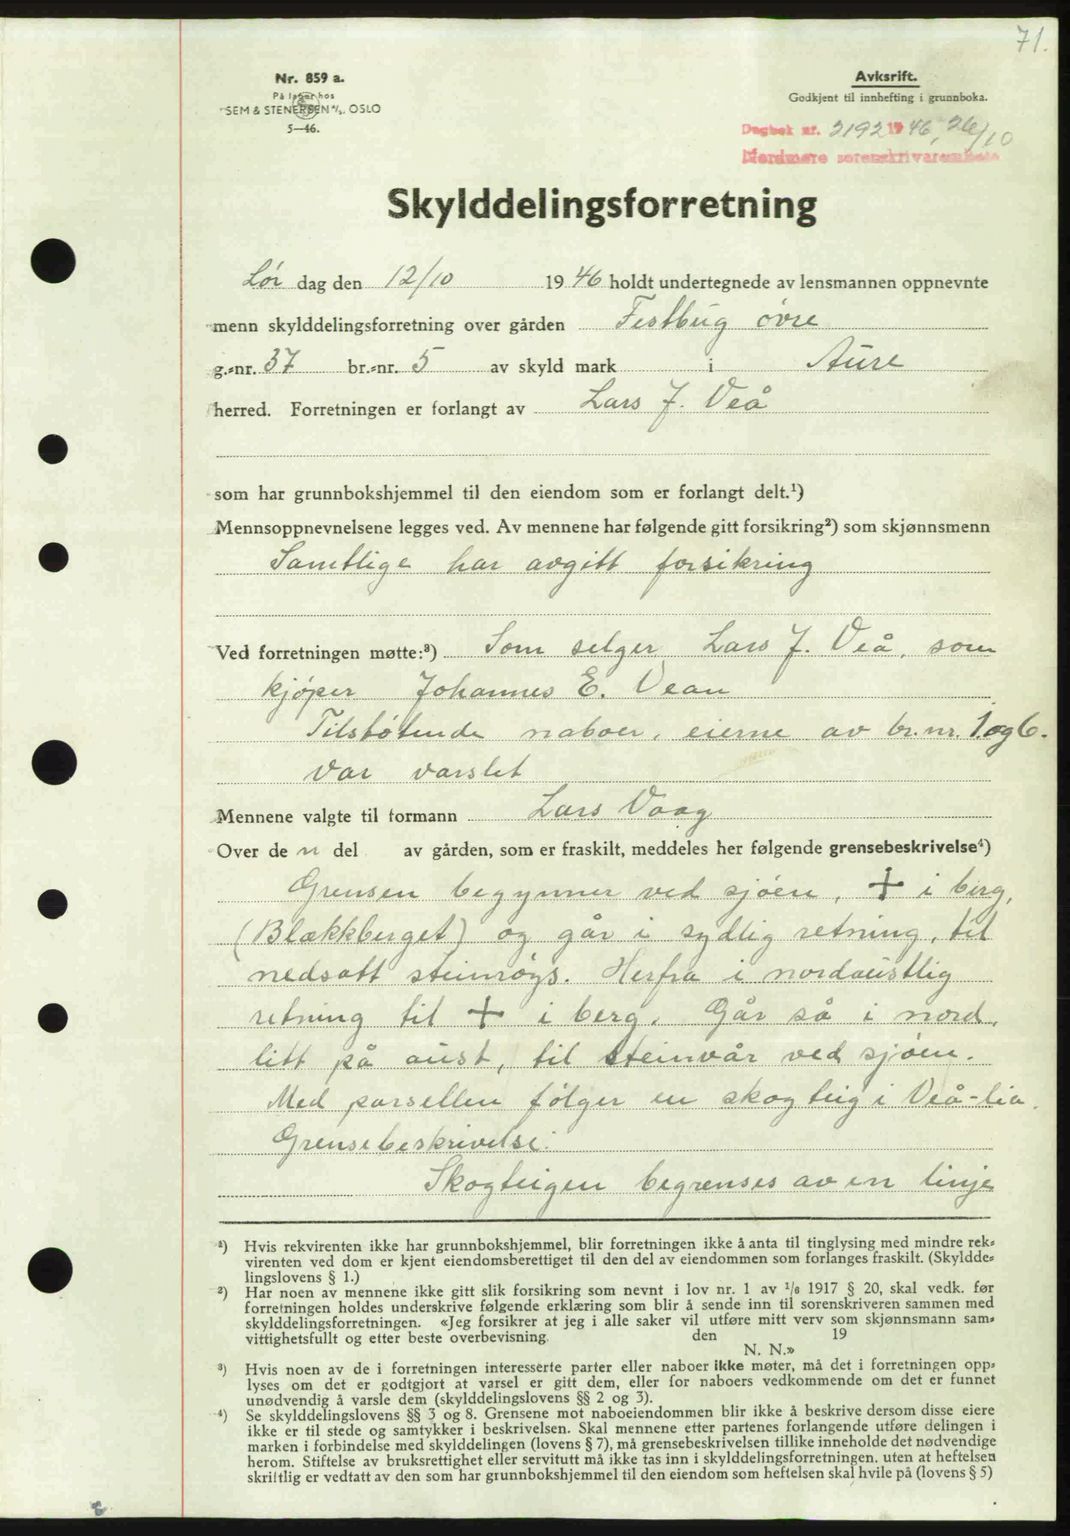 71.
Nr. 859 a.
På lager hos
SEM & STENERSEN A/S. OSLO
5—46.
Avksrift.
Godkjent til innhefting i grunnboka.
Dagbok nr. 2192 1946, 26/10
Nordmøre sorenskriverembete
Skylddelingsforretning
Lør dag den 12/10 1946 holdt undertegnede av lensmannen oppnevnte
menn skylddelingsforretning over gården Festbug øvre
g.-nr. 37 br.-nr. 5 av skyld mark i Aure
herred. Forretningen er forlangt av Lars J. Veå
som har grunnbokshjemmel til den eiendom som er forlangt delt.¹)
Mennsoppnevnelsene legges ved. Av mennene har følgende gitt forsikring²) som skjønnsmenn
Samtlige har avgitt forsikring
Ved forretningen møtte:³) Som selger Lars J. Veå, som
kjøper Johannes E. Vean
Tilstøtende naboer, eierne av br. nr. 1 og 6.
var varslet
Mennene valgte til formann Lars Vaag
Over de n del av gården, som er fraskilt, meddeles her følgende grensebeskrivelse⁴)
Grensen begynner ved sjøen, + i berg,
(Blækkberget) og går i sydlig retning, til
nedsatt steinrøys. Herfra i nordaustlig
retning til + i berg. Går så i nord,
litt på aust, til steinvår ved sjøen.
Med parsellen følger en skogteig i Veå-lia.
Grensebeskrivelse:
Skogteigen begrenses av en linje
¹) Hvis rekvirenten ikke har grunnbokshjemmel, blir forretningen ikke å anta til tinglysing med mindre rek-
virenten ved dom er kjent eiendomsberettiget til den del av eiendommen som forlanges fraskilt. (Skyldde-
lingslovens § 1.)
²) Har noen av mennene ikke gitt slik forsikring som nevnt i lov nr. 1 av 1/8 1917 § 20, skal vedk. før
forretningen holdes underskrive følgende erklæring som blir å sende inn til sorenskriveren sammen med
skylddelingsforretningen. «Jeg forsikrer at jeg i alle saker vil utføre mitt verv som skjønnsmann sam-
vittighetsfullt og etter beste overbevisning. den 19
N. N.»
³) Hvis noen av de i forretningen interesserte parter eller naboer ikke møter, må det i forretningen opp-
lyses om det er godtgjort at varsel er gitt dem, eller for naboers vedkommende om det er funnet
unødvendig å varsle dem (skylddelingslovens §§ 2 og 3).
⁴) Se skylddelingslovens §§ 3 og 8. Grensene mot naboeiendommen blir ikke å beskrive dersom disse eiere
ikke er til stede og samtykker i beskrivelsen. Skal mennene etter partenes forlangende utføre delingen i
marken i forbindelse med skylddelingen (lovens § 7), må grensebeskrivelsen tillike inneholde det nødvendige
herom. Stiftelse av bruksrettighet eller servitutt må ikke tas inn i skylddelingsforretningen, uten at heftelsen
skriftlig er vedtatt av den som har grunnbokshjemmel til den eiendom som heftelsen skal hvile på (lovens § 5)